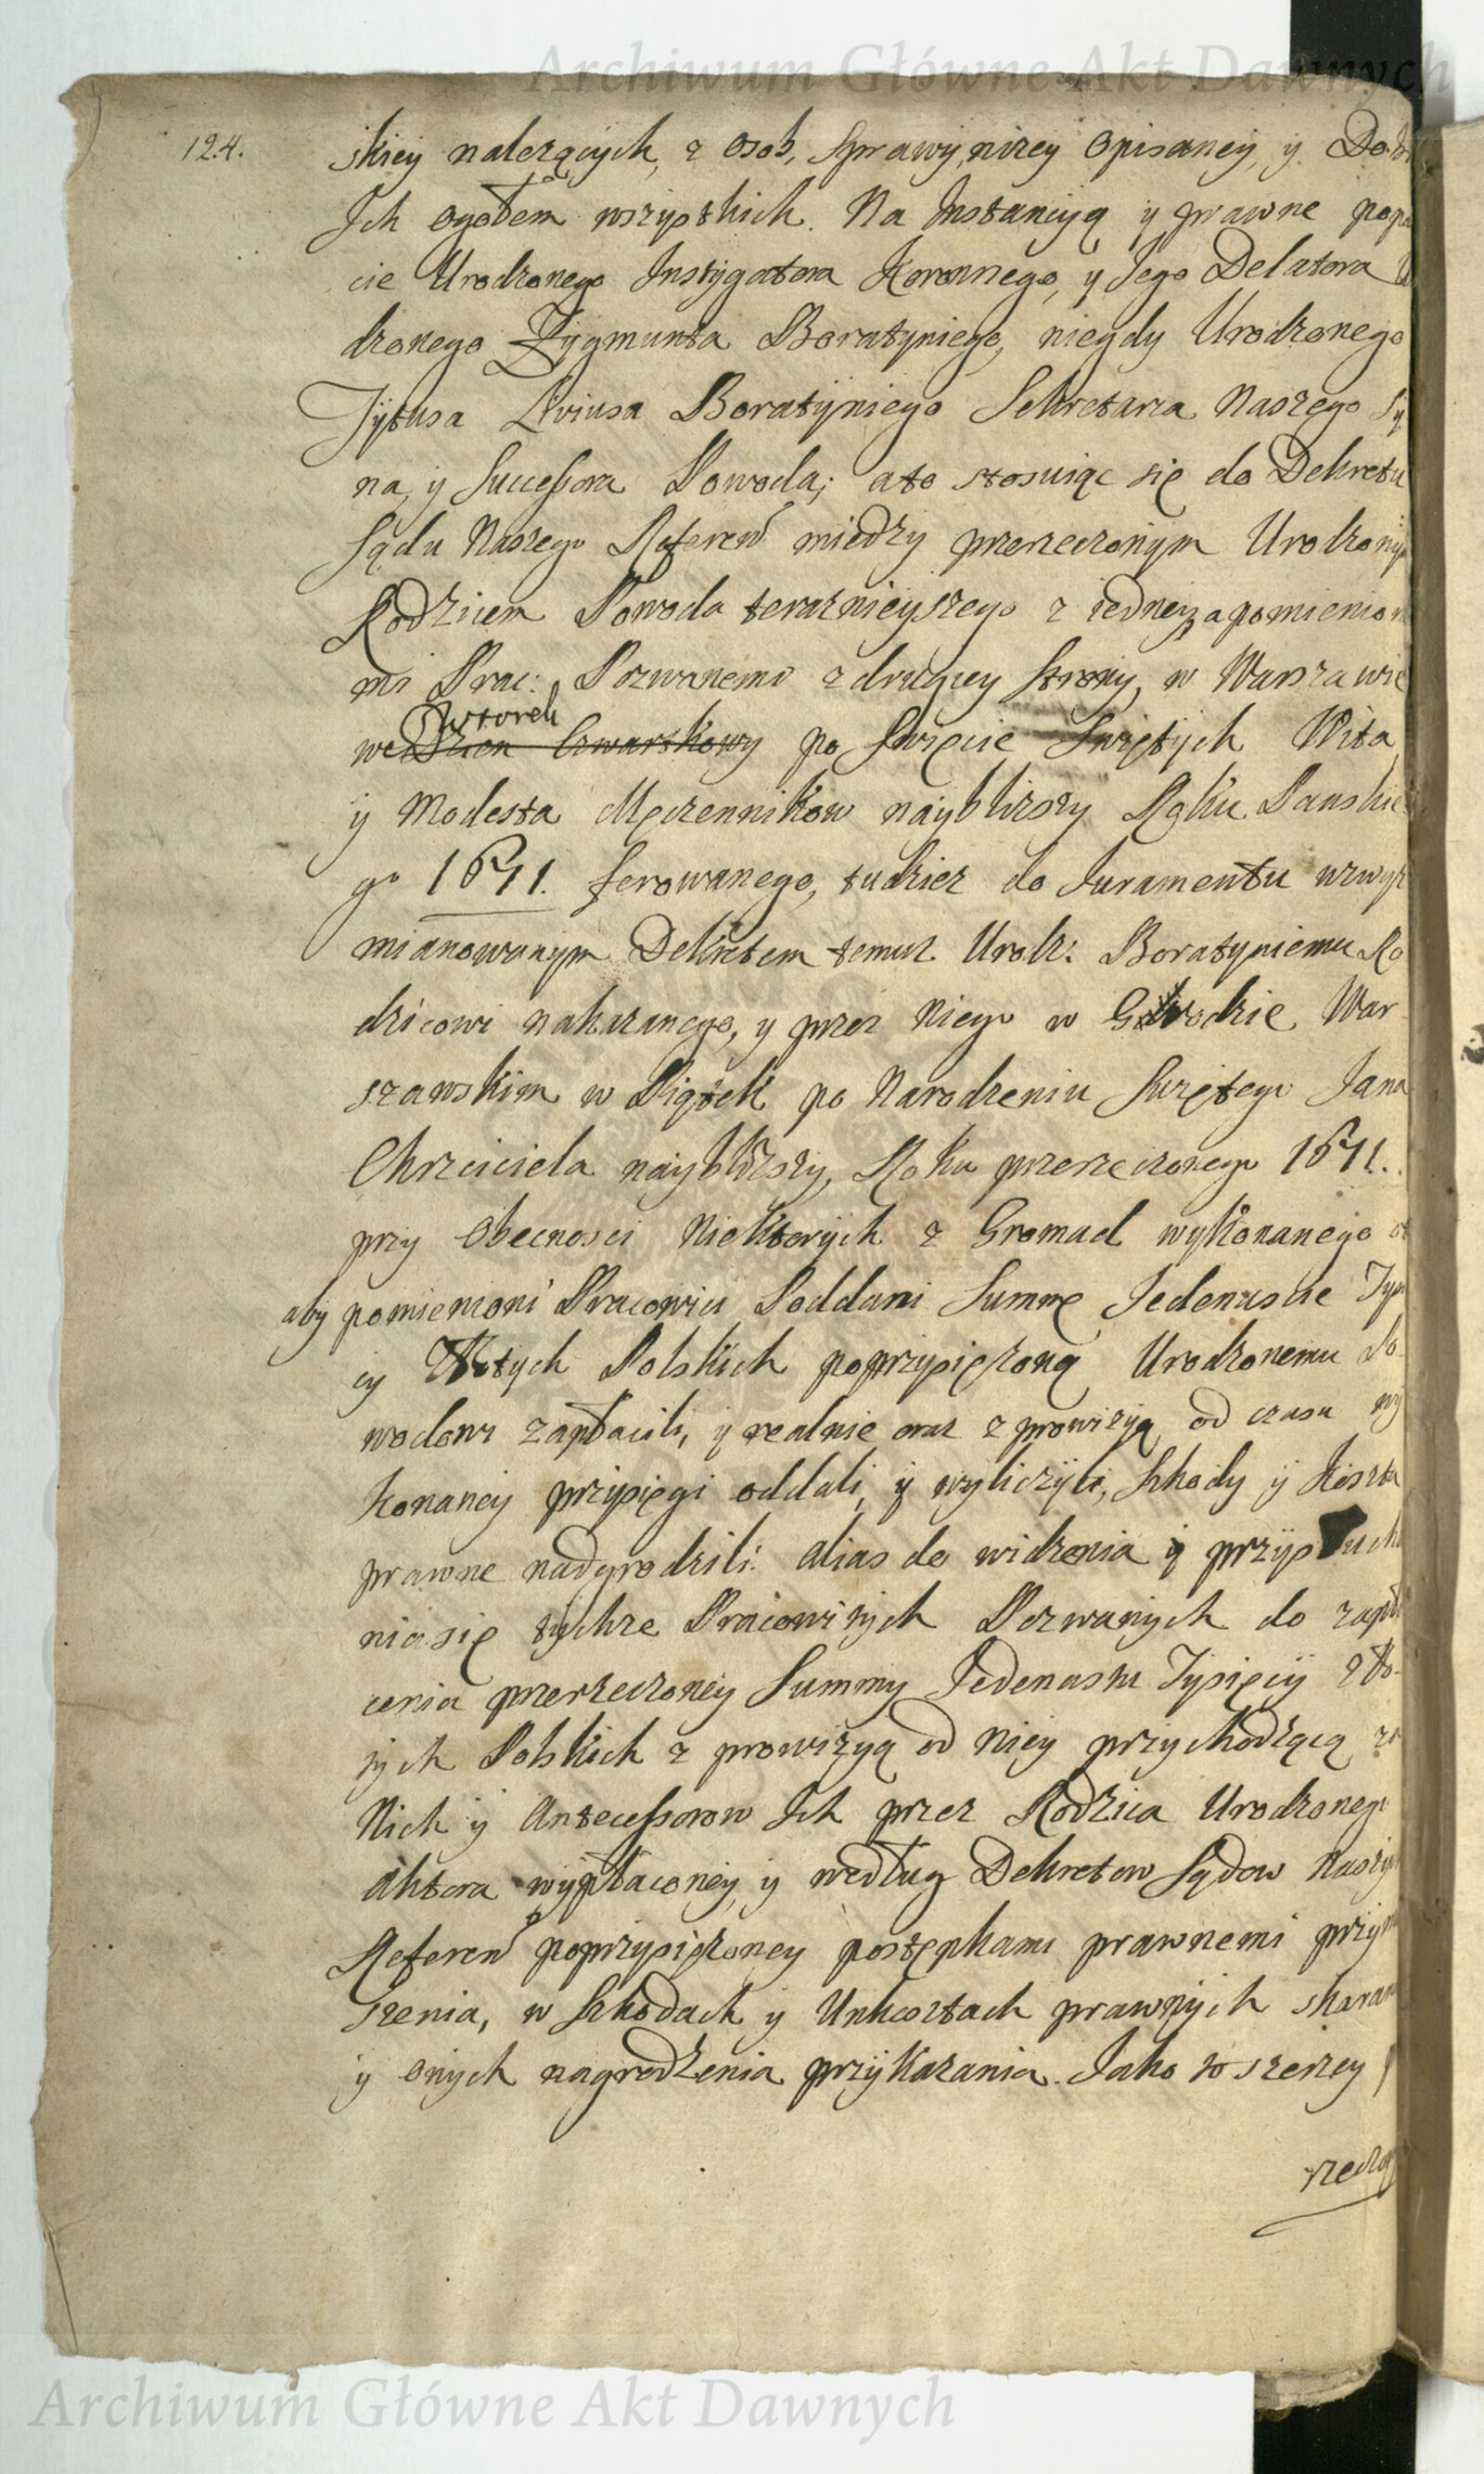 Archiwum Główne Akt Dawnych
124.
skiey należących, z osob, sprawy niżey opisaney, y Dobr
Ich ogołem wszystkich. Na Instancyą y prawne popar
cie Urodzonego Instygatora Koronnego, y Jego Delatora
dzonego Zygmunta Boratyniego, niegdy Urodzonego
Tytusa Liviusa Boratyniego Sekretarza Naszego Sy
na, y Successora Powoda; a to stosuiąc się do Dekretu
Sądu Naszego Referen między przerzeczonym Urodzonym
Rodzicem Powoda teraznieyszego z iedney, a pomienion
mi Prac: Pozwanemi z drugiey strony, w Warszawie
we Dzien Czwartkowy Wtorek po Swięcie Swiętych Wita
y Modesta Męczennikow nayblizszy Roku Panskie
go 1671. ferowanego, tudziez do Juramentu wzwyz
mianowanym Dekretem temuz Urodz: Boratyniemu Ro
dzicowi nakazanego, y przez Niego w Grodzie War
szawskim w Piątek po Narodzeniu Swiętego Jana
Chrzciciela nayblizszy, Roku przerzeczonego 1671.
przy obecnosci Niektorych z Gromad wykonanego
aby pomienioni Pracowici Poddani Summę Jedenascie Tysię
cy Złotych Polskich poprzysięzoną Urodzonemu Po
wodowi zapłacili, y realnie oraz z prowizyą od czasu wy
konaney przysięgi oddali, y wyliczyli, szkody y koszta
prawne nadgrodzili: alias do widzenia y przysłucha
nia się tychze Pracowitych Pozwanych do zapła
cenia przerzeczoney Summy Jedenastu Tysięcy Zło
tych Polskich z prowizyą od Niey przychodzącą za
Nich y Antecessorow Ich przez Rodzica Urodzonego
Aktora wypłaconey, y według Dekretow Sądow Naszych
Referen poprzysięzoney postępkami prawnemi przym
szenia, w szkodach y Unkosztach prawnych skaran
y onych nagrodzenia przykazania. Jako to szerzey
rzeczo
Archiwum Główne Akt Dawnych